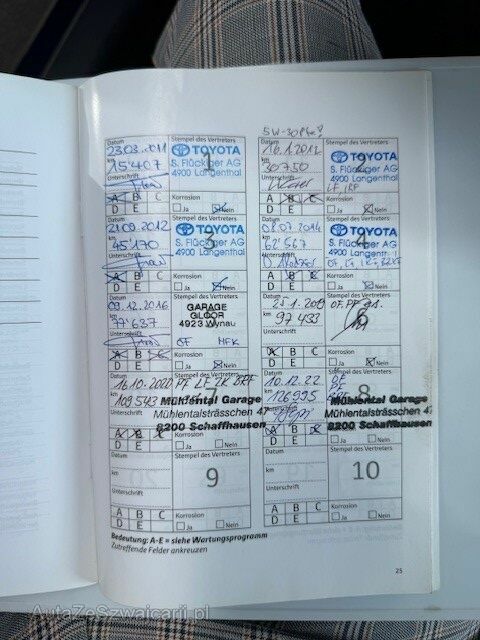 5W-30
Datum
Stempel des Vertreters
23.03.2011
TOYOTA
km
15'407
S. Flückiger AG
Unterschrift
4900 Langenthal
Korrosion
A B C
Ja Nein
D E
Datum
Stempel des Vertreters
16.1.2012
2
TOYOTA
km
30750
S. Flückiger AG
Unterschrift
4900 Langenthal
Korrosion
A B C
Ja Nein
D E
Datum
Stempel des Vertreters
21.09.2012
TOYOTA
km
45'170
S. Flückiger AG
Unterschrift
4900 Langenthal
Korrosion
A B C
Ja Nein
D E
Datum
Stempel des Vertreters
08.07.2014
TOYOTA
km
62'567
S. Flückiger AG
Unterschrift
4900 Langenthal
Korrosion
A B C
Ja Nein
D E
Datum
Stempel des Vertreters
09.12.2016
GARAGE
km
77'637
GLOOR
4923 Wynau
Unterschrift
OF MFK
Korrosion
A B C
Ja Nein
D E
Datum
Stempel des Vertreters
OF. PF
km
97433
6
Unterschrift
Korrosion
A B C
Ja Nein
D E
Datum
16.10.2020 PF LF ZK BRF
km
109543
Mühlental Garage
Unterschrift
Mühlentalsträsschen 47
8200 Schaffhausen
A B C
Ja Nein
D E
Datum
Stempel des Vertreters
10.12.22
OF
km
126995
8
Mühlental Garage
Mühlentalsträsschen 47
8200 Schaffhausen
A B C
Ja Nein
D E
Datum
Stempel des Vertreters
km
9
Unterschrift
Korrosion
A B C
Ja Nein
D E
Datum
Stempel des Vertreters
km
10
Unterschrift
Korrosion
A B C
Ja Nein
D E
Bedeutung: A-E = siehe Wartungsprogramm
Zutreffende Felder ankreuzen
25
AutaZeSzwajcarii.pl